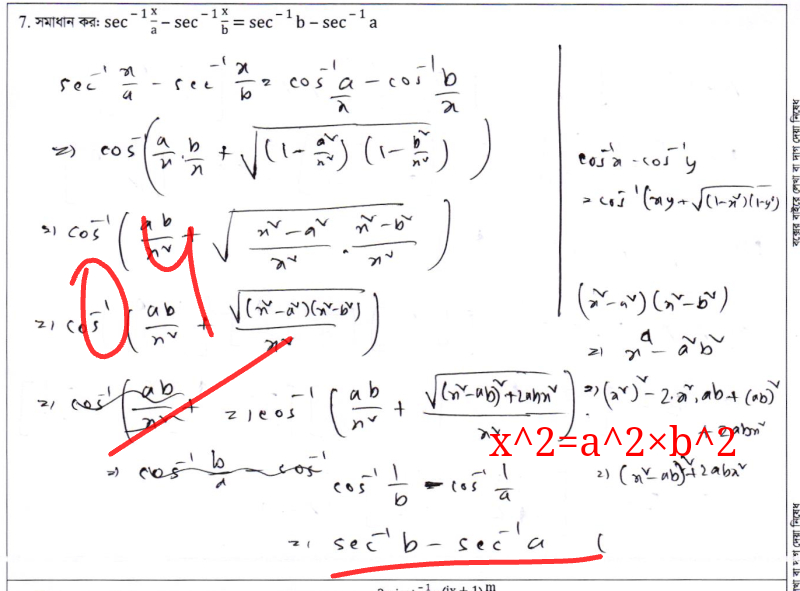 7. সমাধান কর: sec⁻¹ x/a − sec⁻¹ x/b = sec⁻¹ b − sec⁻¹ a
sec⁻¹ x/a − sec⁻¹ x/b = cos⁻¹ a/x − cos⁻¹ b/x
=) cos⁻¹ (a/x · b/x + √((1 − a²/x²) (1 − b²/x²)))
=) cos⁻¹ (ab/x² + √((x² − a²)/x² · (x² − b²)/x²))
=) cos⁻¹ (ab/x² + √((x² − a²)(x² − b²))/x²)
=) cos⁻¹ (ab/x² +
=) cos⁻¹ (ab/x² + √((x² − ab)² + 2abx²)/x²)
=) cos⁻¹ b/a − cos⁻¹
cos⁻¹ 1/b − cos⁻¹ 1/a
=) sec⁻¹ b − sec⁻¹ a (
04
cos⁻¹x − cos⁻¹y
= cos⁻¹ (xy + √(1−x²)(1−y²)
(x² − a²) (x² − b²)
=) x⁴ − a²b²
=) (x²)² − 2·x²·ab + (ab)²
+ 2abx²
x^2=a^2×b^2
=) (x² − ab)² + 2abx²
বক্সের বাইরে লেখা বা দাগ দেয়া নিষেধ